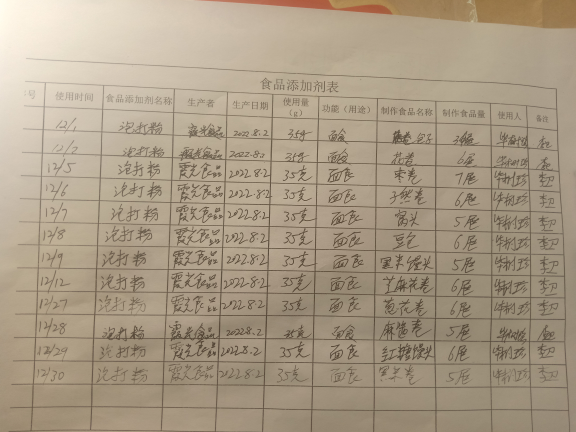 食品添加剂表
号 使用时间 食品添加剂名称 生产者 生产日期 使用量（g） 功能（用途） 制作食品名称 制作食品量 使用人 备注
12/1 泡打粉 霞光食品 2022.8.2 35g 面食
12/2 泡打粉 霞光食品 2022.8.2 35g 面食 花卷 6屉
12/5 泡打粉 霞光食品 2022.8.2 35克 面食 枣卷 7屉
12/6 泡打粉 霞光食品 2022.8.2 35克 面食 子然卷 6屉
12/7 泡打粉 霞光食品 2022.8.2 35克 面食 窝头 5屉
12/8 泡打粉 霞光食品 2022.8.2 35克 面食 豆包 6屉
12/9 泡打粉 霞光食品 2022.8.2 35克 面食 黑米馒头 5屉
12/12 泡打粉 霞光食品 2022.8.2 35克 面食 芝麻花卷 6屉
12/27 泡打粉 霞光食品 2022.8.2 35克 面食 葱花卷 6屉
12/28 泡打粉 霞光食品 2022.8.2 35克 面食 麻酱卷 5屉
12/29 泡打粉 霞光食品 2022.8.2 35克 面食 红糖馒头 6屉
12/30 泡打粉 霞光食品 2022.8.2 35克 面食 黑米卷 5屉